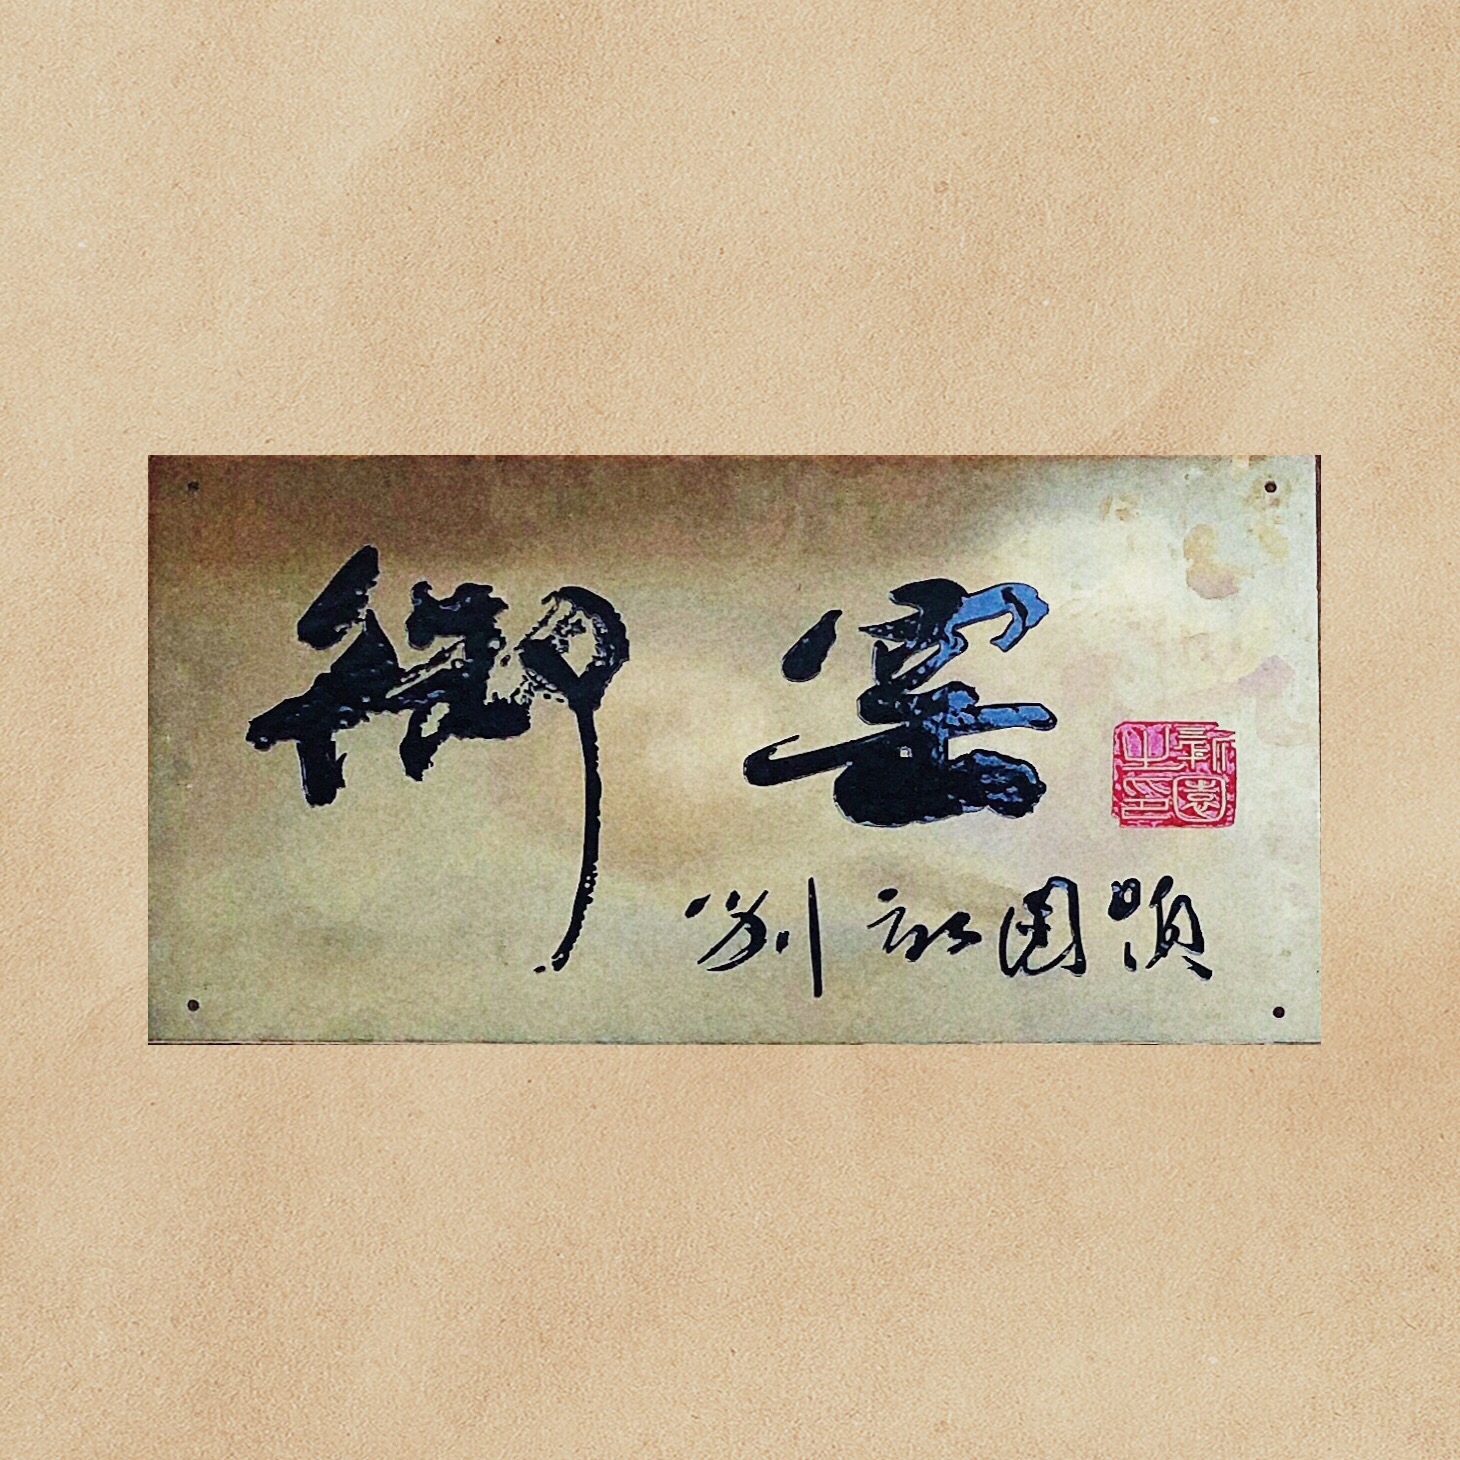 御窯
新園之印
劉新園題